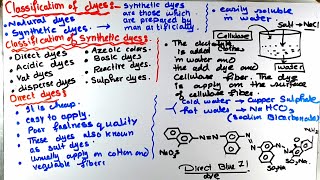 Classification of dyes:-
• Natural dyes
• Synthetic dyes.
Synthetic dyes are those which are prepared by man artificially
Classification of Synthetic dyes:-
• Direct dyes
• Acidic dyes
• Vat dyes
• disperse dyes
• Azoic colors.
• Basic dyes
• Reactive dyes.
• Sulpher dyes.
Direct dyes:
• It is cheap
• easy to apply.
• Poor fastness quality
• These dyes also known as salt dyes.
• Usually apply on cotton and vegetable fiber.
• easily soluble in water
Cellulose
Salt → NaCl
Water
• The electrolyte is added
in water and
the add dye and
Cellulose fiber. The dye
is apply on the surface
of cellulose fiber
Cold water → Cupper Sulphate
Hot water → NaHCO3
(Sodium Bicarbonate)
NaO3S
N=N
N=N
SO3Na
Direct Blue 71
dye